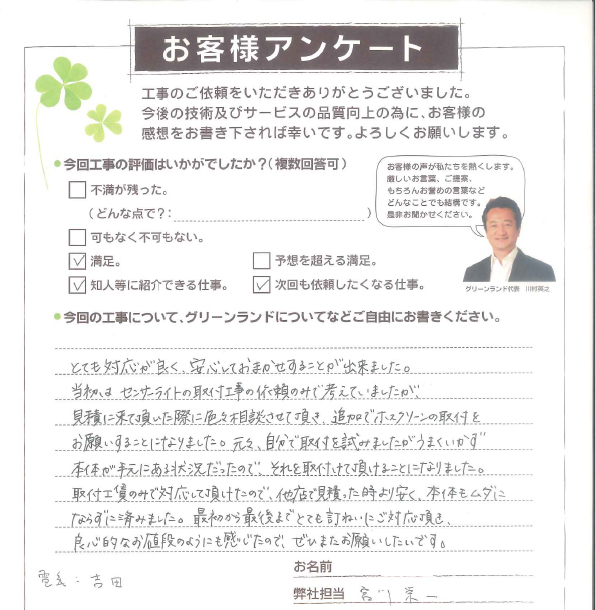 お客様アンケート
工事のご依頼をいただきありがとうございました。
今後の技術及びサービスの品質向上の為に、お客様の
感想をお書き下されば幸いです。よろしくお願いします。
今回工事の評価はいかがでしたか？(複数回答可)
不満が残った。
(どんな点で？: )
可もなく不可もない。
満足。
予想を超える満足。
知人等に紹介できる仕事。
次回も依頼したくなる仕事。
お客様の声が私たちを熱くします。
厳しいお言葉、ご提案、
もちろんお誉めの言葉など
どんなことでも結構です。
是非お聞かせください。
グリーンランド代表 川村英之
今回の工事について、グリーンランドについてなどご自由にお書きください。
とても対応が良く、安心しておまかせすることが出来ました。
当初は センサーライトの取付工事の依頼のみで考えていましたが、
見積に来て頂いた際に色々相談させて頂き、追加でホスクリーンの取付を
お願いすることになりました。元々、自分で取付を試みましたがうまくいかず
本体が手元にある状況だったので、それを取付けて頂けることになりました。
取付工賃のみで対応して頂けたので、他店で見積った時より安く、本体もムダに
ならずに済みました。最初から最後までとても訂ねいにご対応頂き、
良心的なお値段のようにも感じたので、ぜひまたお願いしたいです。
お名前
電気：吉田
弊社担当